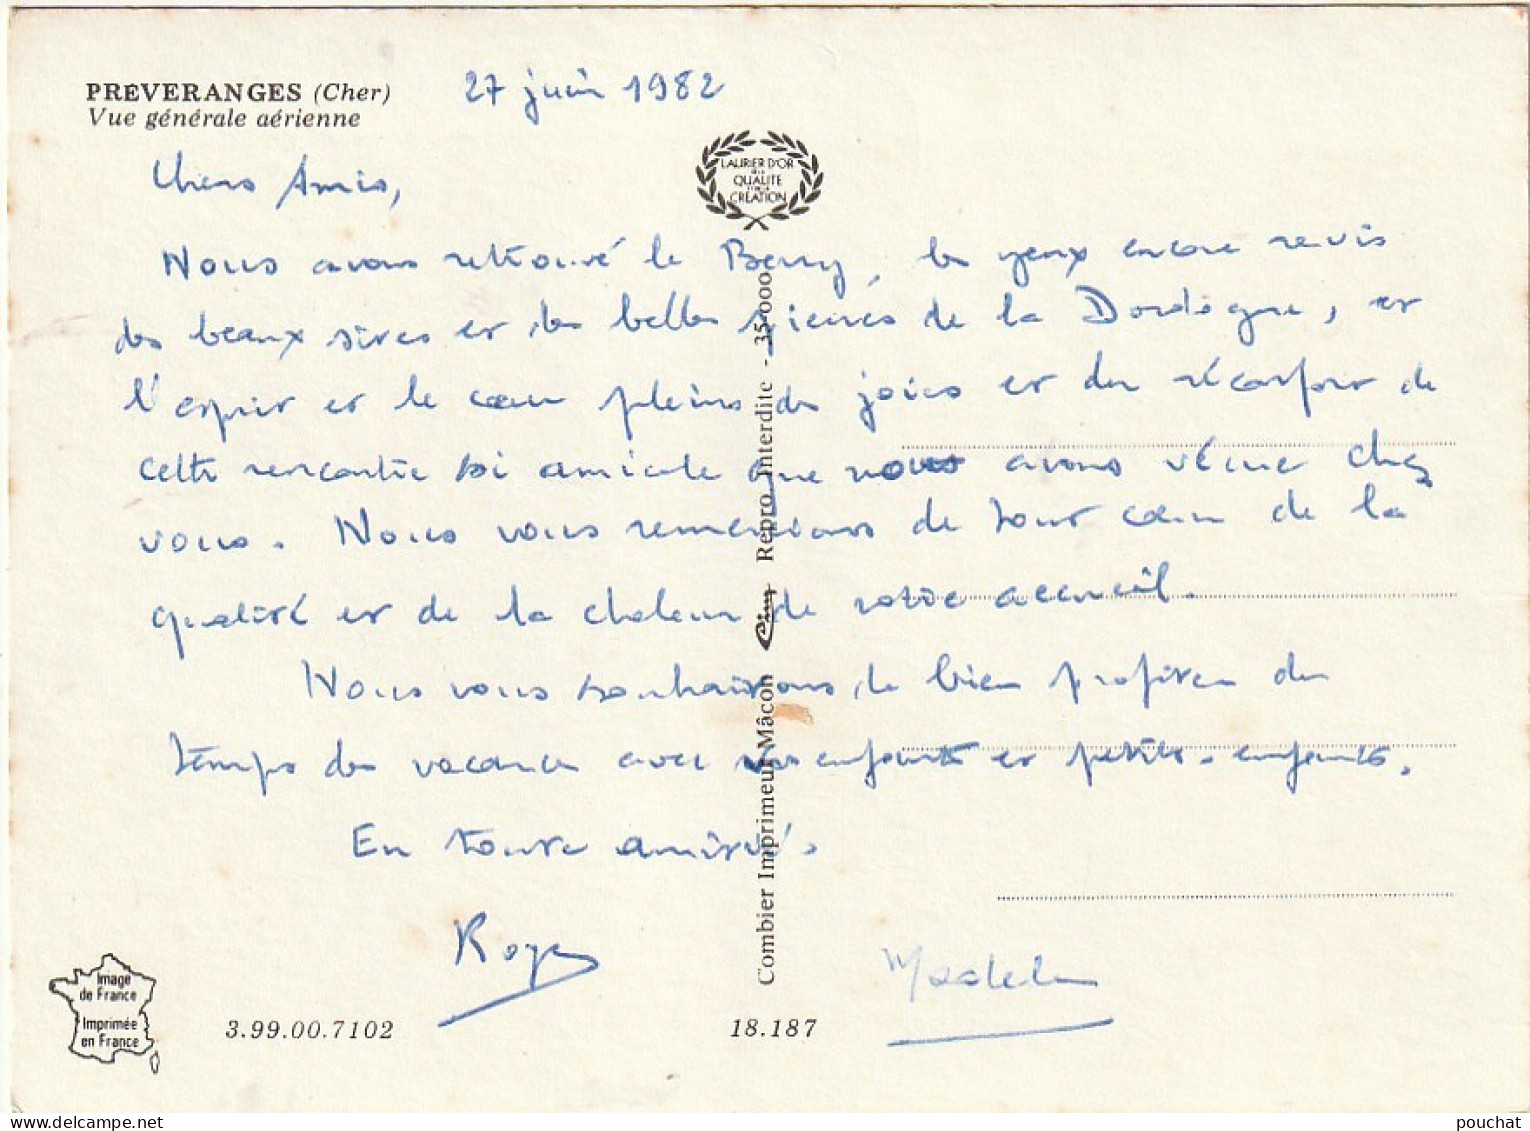 PREVERANGES (Cher)
Vue générale aérienne
27 juin 1982
LAURIER D'OR
DE LA
QUALITE
ET DE LA
CRÉATION
Chers Amis,
Nous avons retrouvé le Berry, les yeux encore ravis
des beaux sites et des belles pierres de la Dordogne, et
l'esprit et le cœur pleins des joies et du réconfort de
cette rencontre si amicale que nous avons vécue chez
vous. Nous vous remercions de tout cœur de la
qualité et de la chaleur de votre accueil.
Nous vous souhaitons de bien profiter du
temps des vacances avec vos enfants et petits-enfants.
En toute amitié.
Roger
Madeleine
Combier Imprimeur Mâcon Cim Repro. Interdite - 35.000
Image
de France
Imprimée
en France
3.99.00.7102
18.187
pouchat